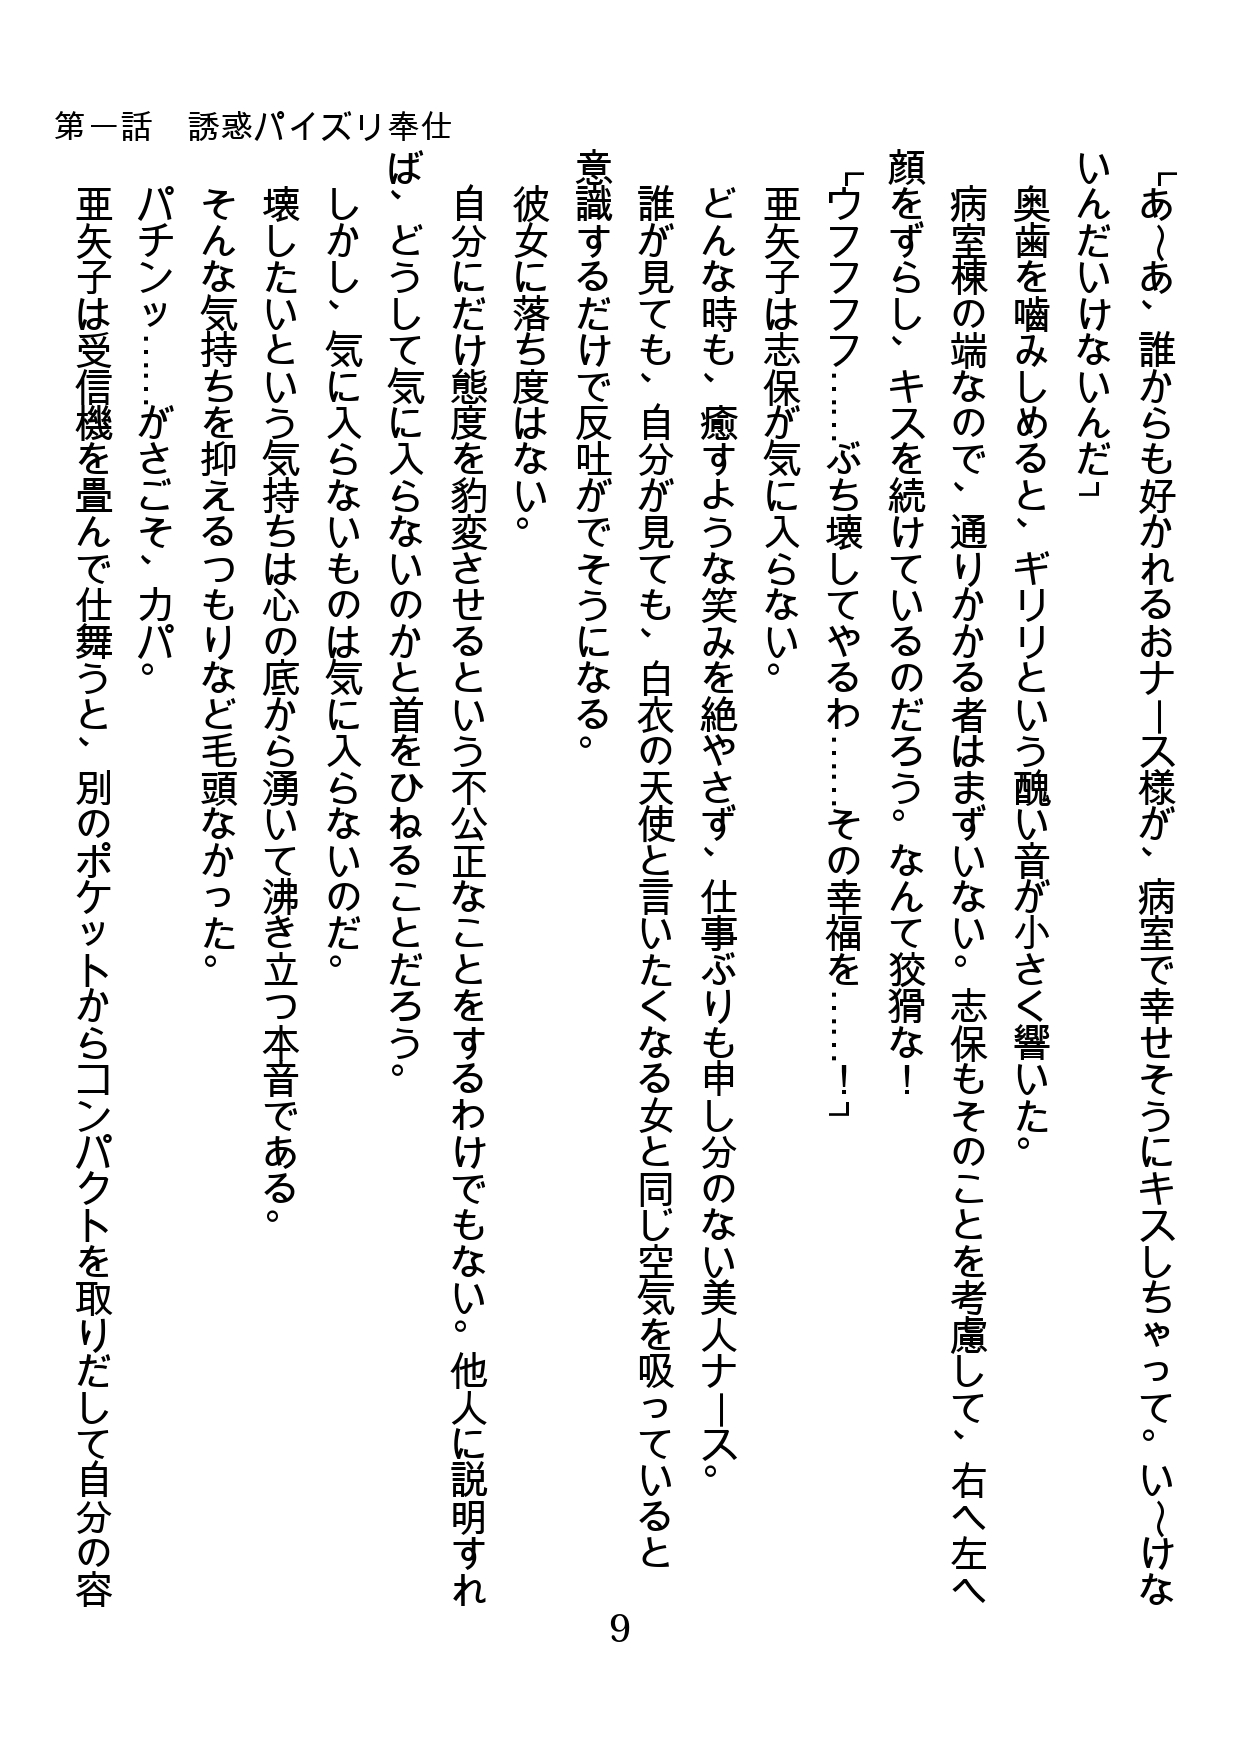 第一話　誘惑パイズリ奉仕
「あ～あ、誰からも好かれるおナース様が、病室で幸せそうにキスしちゃって。い～けな
いんだいけないんだ」
奥歯を嚙みしめると、ギリリという醜い音が小さく響いた。
病室棟の端なので、通りかかる者はまずいない。志保もそのことを考慮して、右へ左へ
顔をずらし、キスを続けているのだろう。なんて狡猾な！
「ウフフフフ……ぶち壊してやるわ……その幸福を……！」
亜矢子は志保が気に入らない。
どんな時も、癒すような笑みを絶やさず、仕事ぶりも申し分のない美人ナース。
誰が見ても、自分が見ても、白衣の天使と言いたくなる女と同じ空気を吸っていると
意識するだけで反吐がでそうになる。
彼女に落ち度はない。
自分にだけ態度を豹変させるという不公正なことをするわけでもない。他人に説明すれ
ば、どうして気に入らないのかと首をひねることだろう。
しかし、気に入らないものは気に入らないのだ。
壊したいという気持ちは心の底から湧いて沸き立つ本音である。
そんな気持ちを抑えるつもりなど毛頭なかった。
パチンッ……がさごそ、カパ。
亜矢子は受信機を畳んで仕舞うと、別のポケットからコンパクトを取りだして自分の容
9